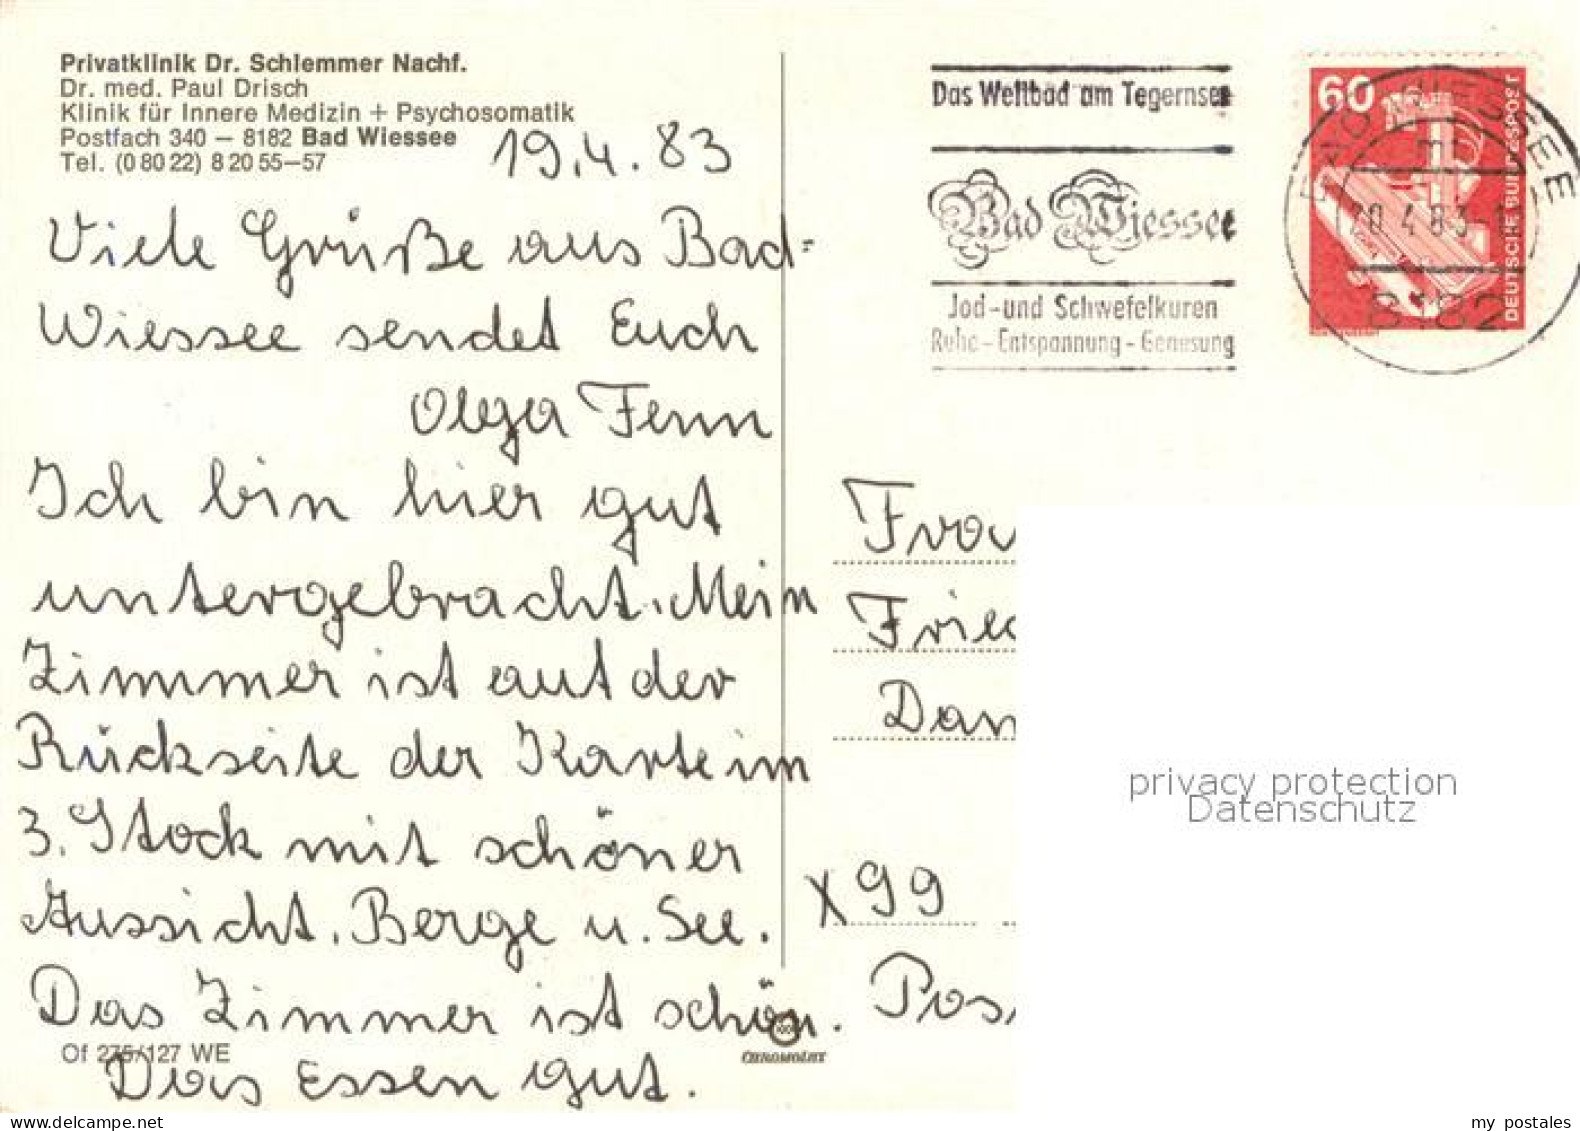 Privatklinik Dr. Schlemmer Nachf.
Dr. med. Paul Drisch
Klinik für Innere Medizin + Psychosomatik
Postfach 340 — 8182 Bad Wiessee
Tel. (0 80 22) 8 20 55—57
19.4.83
Viele Grüße aus Bad=
Wiessee sendet Euch
Olga Fenn
Ich bin hier gut
untergebracht. Mein
Zimmer ist auf der
Rückseite der Karte im
3. Stock mit schöner
Aussicht. Berge u. See.
Das Zimmer ist schön.
Das Essen gut.
Of 275/127 WE
CHROMOLUX
Das Weltbad am Tegernsee
Bad Wiessee
Jod-und Schwefelkuren
Ruhe-Entspannung-Genesung
60
DEUTSCHE BUNDESPOST
BAD WIESSEE
20.4.83
8182
Frau
Fried
Dan
X 99
Pos
privacy protection
Datenschutz
my postales